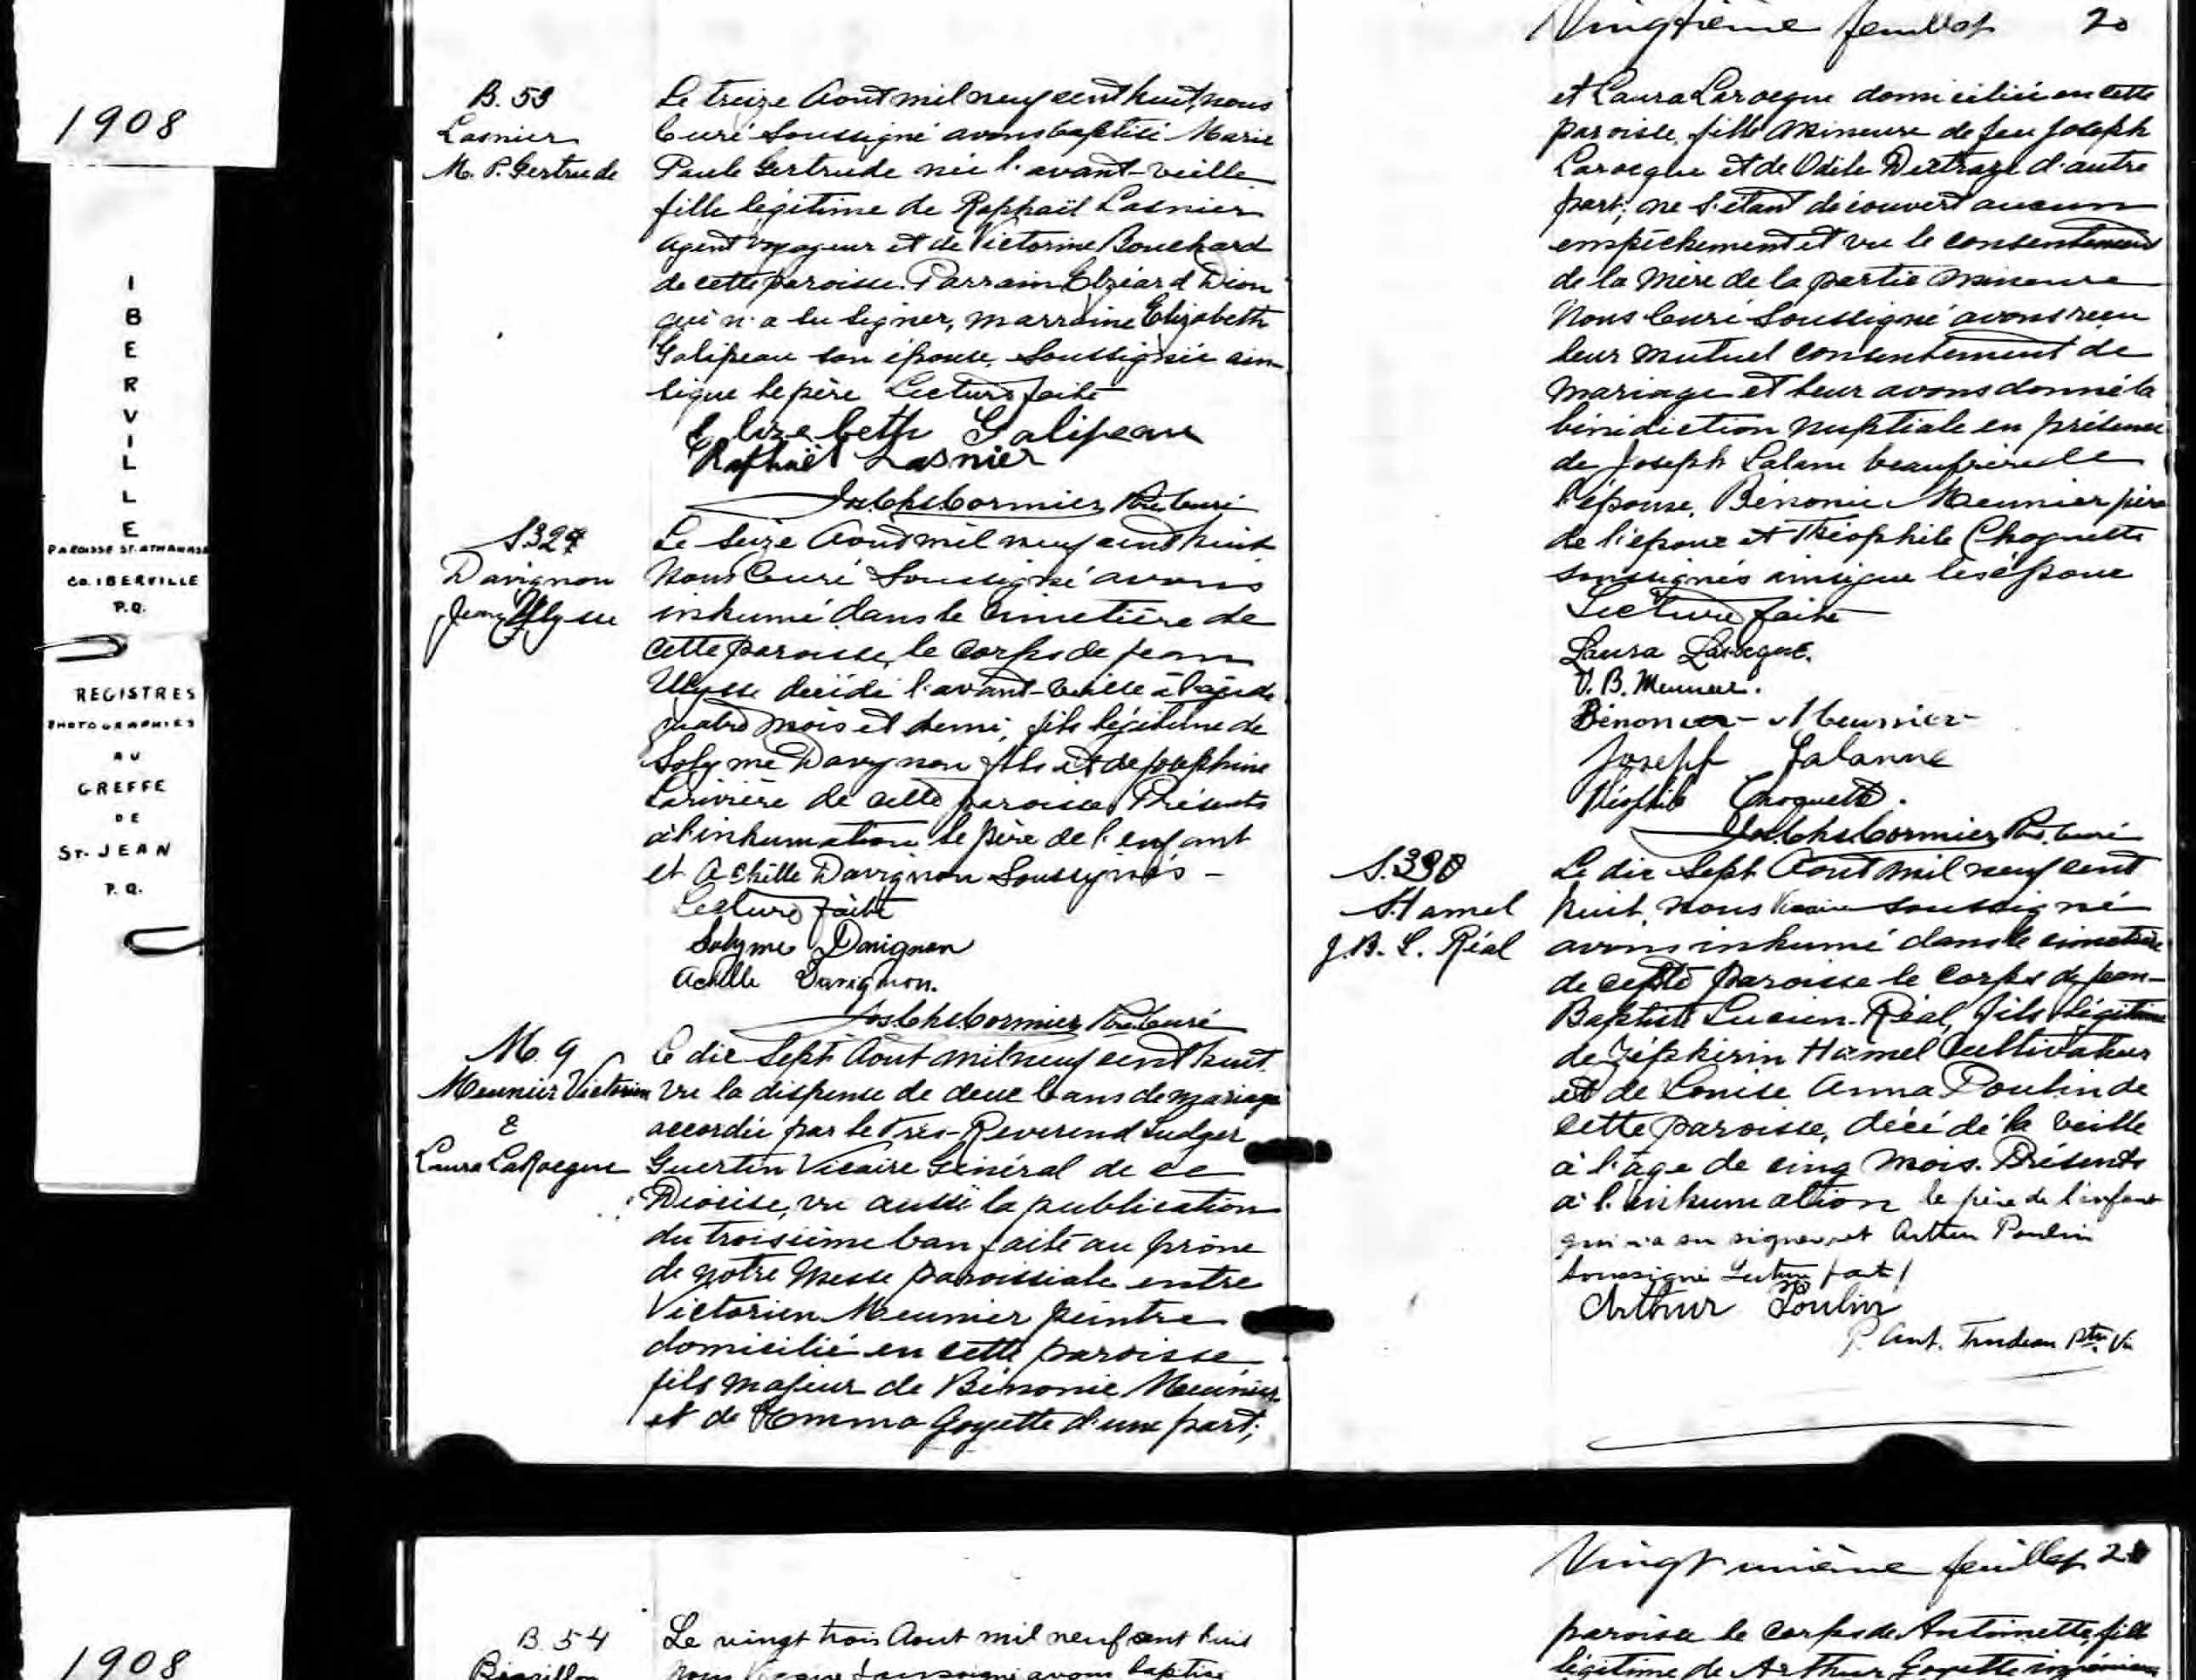 1908
I
B
E
R
V
I
L
L
E
PAROISSE ST. ATHANASE
CO. IBERVILLE
P.Q.
REGISTRES
PHOTOGRAPHIES
AU
GREFFE
DE
ST. JEAN
P.Q.
B. 53
Lasnier
M. P. Gertrude
Le treize Aout mil neuf cent huit, nous
Curé Soussigné avons baptisé Marie
Paule Gertrude née l'avant-veille
fille légitime de Raphaël Lasnier
agent voyageur et de Victorine Bouchard
de cette paroisse. Parrain Elzéard Dion
qui n'a su signer, marraine Elizabeth
Galipeau son épouse, Soussignée ain-
sique le père Lecture faite
Elizabeth Galipeau
Raphaël Lasnier
Jos Chs Cormier Ptre Curé
Davignon
Jean Ulysse
Le Seize Aout mil neuf cent huit
Nous Curé Soussigné avons
inhumé dans le cimetière de
cette paroisse, le corps de Jean
Ulysse décédé l'avant-veille à l'age de
quatre mois et demi, fils légitime de
Solyme Davignon fils et de Josephine
Larivière de cette paroisse. Présents
à l'inhumation le père de l'enfant
et Achille Davignon Soussignés -
Lecture faite
Solyme Davignon
Achille Davignon.
Jos Chs Cormier Ptre Curé
M. 9
Meunier Victorien
&
Laura LaRocque
Le dix Sept Aout mil neuf cent huit
vu la dispense de deux bans de mariage
accordée par le Très-Reverend Ludger
Guertin Vicaire Général de ce
Diocèse, vu aussi la publication
du troisième ban faite au prône
de notre Messe paroissiale entre
Victorien Meunier peintre
domicilié en cette paroisse,
fils majeur de Bénonie Meunier
et de Emma Goyette d'une part;
Vingtième feuillet 20
et Laura Larocque domiciliée en cette
paroisse, fille mineure de feu Joseph
Larocque et de Odile d'autre
part; ne s'étant découvert aucun
empêchement et vu le consentement
de la Mère de la partie mineure
Nous Curé Soussigné avons reçu
leur mutuel consentement de
mariage et leur avons donné la
bénédiction nuptiale en présence
de Joseph Lalane beaufrère de
l'épouse, Bénonie Meunier père
de l'époux et Théophile Choquette
soussignés ainsique les époux
Lecture faite
Laura Larocque.
V. B. Meunier.
Bénonie Meunier
Joseph Lalanne
Théophile Choquette.
Jos Chs Cormier Ptre Curé
Hamel
J. B. L. Réal
Le dix Sept Aout mil neuf cent
huit, nous Vicaire soussigné
avons inhumé dans le cimetière
de cette paroisse le corps de Jean-
Baptiste Lucien Réal, fils légitime
de Zéphirin Hamel Cultivateur
et de Louise Anna Poulin de
cette paroisse, décédé la veille
à l'âge de cinq mois. Présents
à l'inhumation le père de l'enfant
qui n'a su signer, et Arthur Poulin
soussigné Lecture faite!
Arthur Poulin
P. Ant. Trudeau Ptre Vic
1908
B. 54
Le vingt trois Aout mil neuf cent huit
nous Vicaire soussigné avons baptisé
Vingt unième feuillet
paroisse le corps de Antoinette, fille
légitime de Arthur Goyette